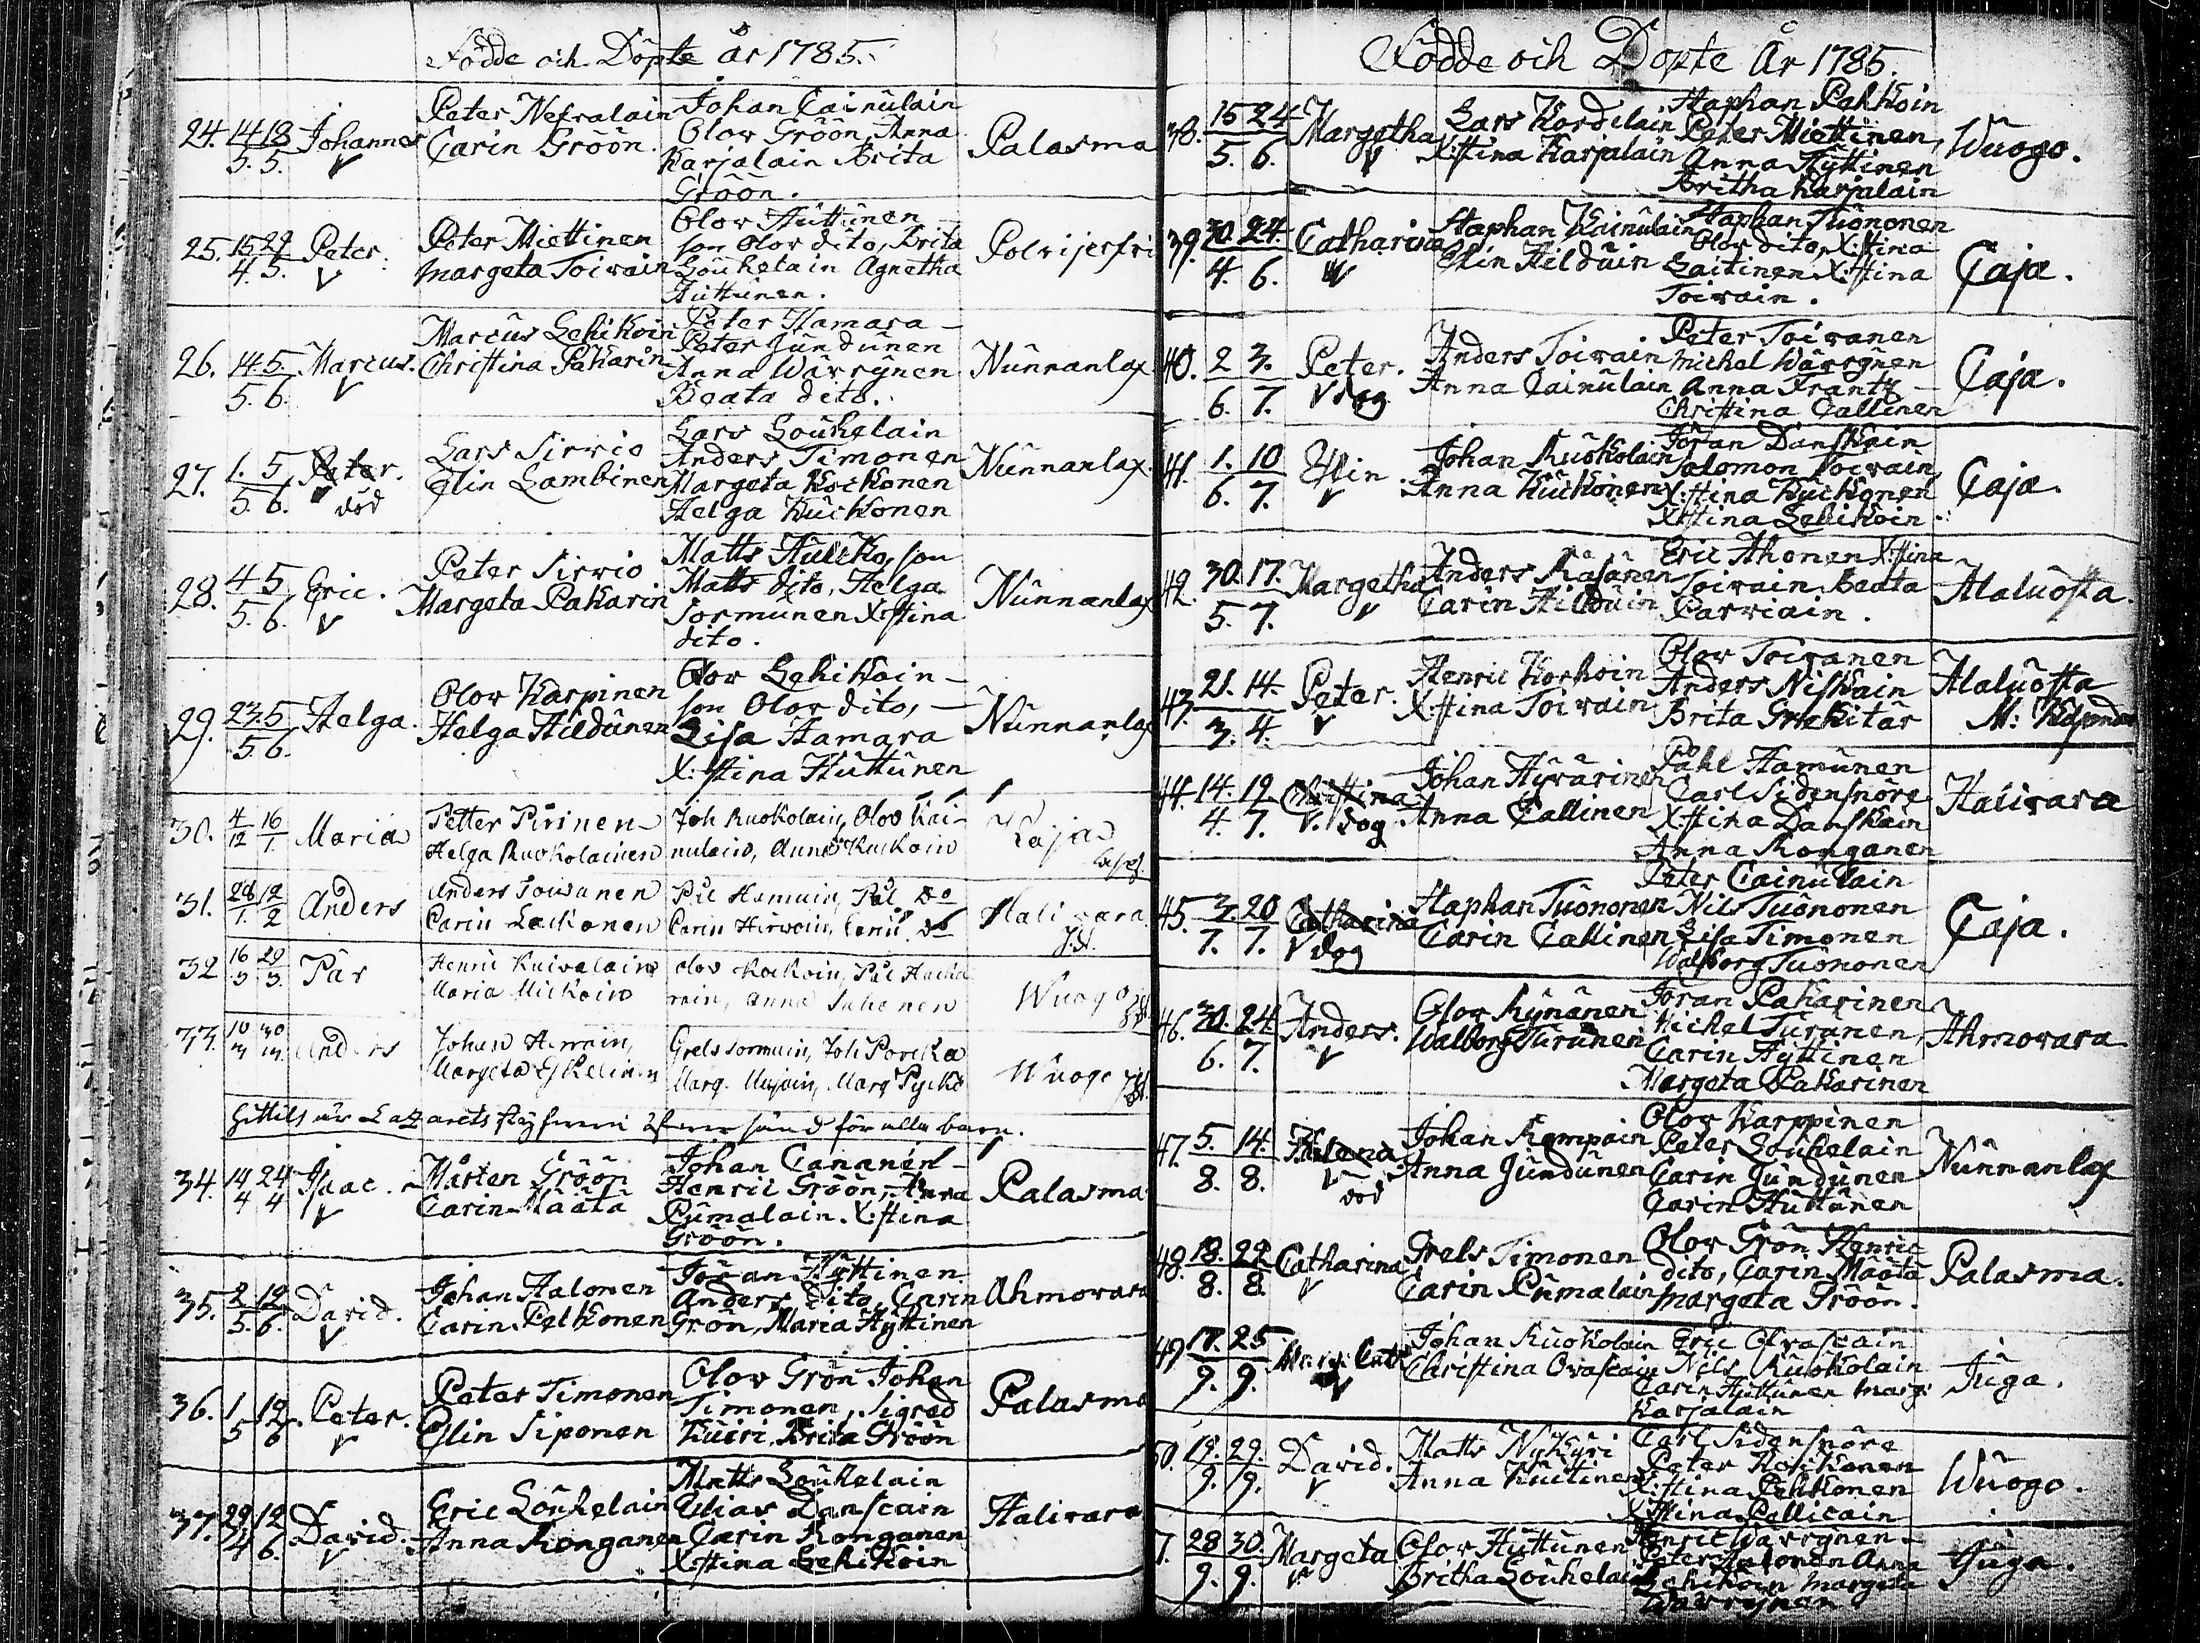 Födde och Döpte år 1785.
24. 14 18 Johannes Peter Nevalain Johan Cainulain
5. 5. v Carin Gröön. Olov Gröön, Anna Palasma
Karjalain Brita
Gröön.
25. 15 29 Peter. Peter Miettinen Olov Huttunen
4. 5. v Margeta Toivain son Olov dito, Brita Polvijerfvi
Louhelain Agnetha
Huttunen.
26. 14. 5. Marcus. Marcus Lehikoin Peter Hamara
5. 6. v Christina Pakarin Peter Jundunen Nunnanlax
Anna Wärrynen
Beata dito.
27. 1. 5 Peter. Lars Sirvio Lars Louhelain
5. 6. v död Elin Lambinen Anders Timonen Nunnanlax.
Margeta Kockonen
Helga Kuckonen
28. 4 5 Eric. Peter Sirvio Matts Hulcko, son
5. 6. v Margeta Pakarin Matts dito, Helga Nunnanlax
Sormunen X:stina
dito.
29. 23. 5 Helga. Olov Karpinen Olov Lehikoin
5 6. Helga Hildunen son Olov dito, Nunnanlax
Lisa Hamara
X:stina Huttunen
30. 4 16 Maria Petter Pirinen Joh Ruokolain, Olov Kai-
12 1 Helga Ruokolainen nulain, Anna Kuckoin Kaja
31. 28 12 Anders Anders Toivanen Pål Hamuin, Pål Do
1. 2 Carin Lackonen Carin Hirvoin, Carin Do Halivara
32 16 20 Pär Henric Kuivalain Olov Kockoin, Pål
3 3. Maria Mickoin rain, Anna Suhonen Wuogo
33. 10 30 Anders Johan Hirvoin, Grels Sormuin, Joh
Margeta Eskelinen Marg. Marg Wuogo
34. 14 24 Isaac. Mårten Gröön Johan Cananen
4 4 v Carin Määtä Henric Gröön, Anna Palasma
Pumalain. X:stina
Gröön.
35. 2 12 David. Johan Halonen Jöran Hyttinen
5. 6. v Carin Pelkonen Anders dito, Carin Ahmovara
Grön, Maria Hyttinen
36. 1 12. Peter. Peter Timonen Olov Grön Johan
5 6 v Elin Siponen Timonen, Sigred Palasma
Kuiri, Brita Gröön
37. 29 12 David. Eric Louhelain Matts Louhelain
4 6. v Anna Ronganen Elias Danscain Halivara
Carin Ronganen
X:stina Lehikoin
Födde och Döpte År 1785.
38. 15 24 Margetha Lars Kordelain Staphan Pakkoin
5. 6. v X:stina Karjalain Peter Miettinen, Wuogo.
Anna Hyttinen
Britha Karjalain
39. 30. 24. Catharina Staphan Kainulain Staphan Tuononen
4. 6. v Elin Hilduin Olov dito, X:stina Caja.
Laitinen X:stina
Toivain.
40. 2 3. Peter. Anders Toivain Peter Toivanen
6. 7. v dog Anna Cainulain Michel Wärrynen Caja.
Anna Frantz
Christina Callinen
41. 1. 10 Elin Johan Ruokolain Jöran Danskain
6. 7. v Anna Kuckonen Salomon Toivain Caja.
X:stina Kuckonen
X:stina Lehikoin
42. 30. 17. Margetha Anders Räsänen Eric Ahonen X:stina
5. 7. v Carin Hilduin Toivain Beata Alaluosta.
Parviain.
43. 21. 14. Peter. Henric Korhoin Olov Toivanen Alaluosta
3. 4. v X:stina Toivain Anders Niskain
Brita Grekitär
44. 14. 19. Christina Johan Hyvärinen Påhl Hamunen
4. 7. v. dog Anna Callinen Carl Sidensnöre Halivara
X:stina Danskain
Anna Ronganen
45. 3. 20 Catharina Staphan Tuononen Peter Cainulain
7. 7. v dog Carin Callinen Nils Tuononen Caja.
Lisa Timonen
Walborg Tuononen
46. 30. 24. Anders. Olov Rynänen Jöran Pakarinen
6. 7. v Walborg Turunen Michel Turunen, Ahmovara
Carin Hyttinen
Margeta Pakarinen
47. 5. 14. Helena Johan Rompain Olov Karppinen
8. 8. v död Anna Jundunen Peter Louhelain Nunnanlax
Carin Jundunen
Carin Huttunen
48. 18. 22 Catharina Grels Timonen Olov Grön Henric
8. 8. v Carin Pumalain dito, Carin Määtä Palasma.
Margeta Gröön.
49 17. 25 Johan Ruokolain Eric Ovascain
9. 9. v Christina Ovascain Nils Ruokolain Juga.
Carin Huttunen Marg:
Karjalain
50. 19. 29. David. Matts Nykyri Carl Sidensnöre
9. 9. v Anna Kuitinen Peter Kockonen Wuogo.
X:stina Pehkonen
X:stina Pellicain
28 30. Margeta Olov Huttunen Henric Wärrynen
9. 9. v Britha Louhelain Peter Halonen Anna Juga.
Lehikoin Margeta
Wärrynen